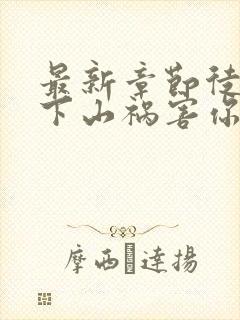 最新章節徒
下山禍害你
摩西�達揚